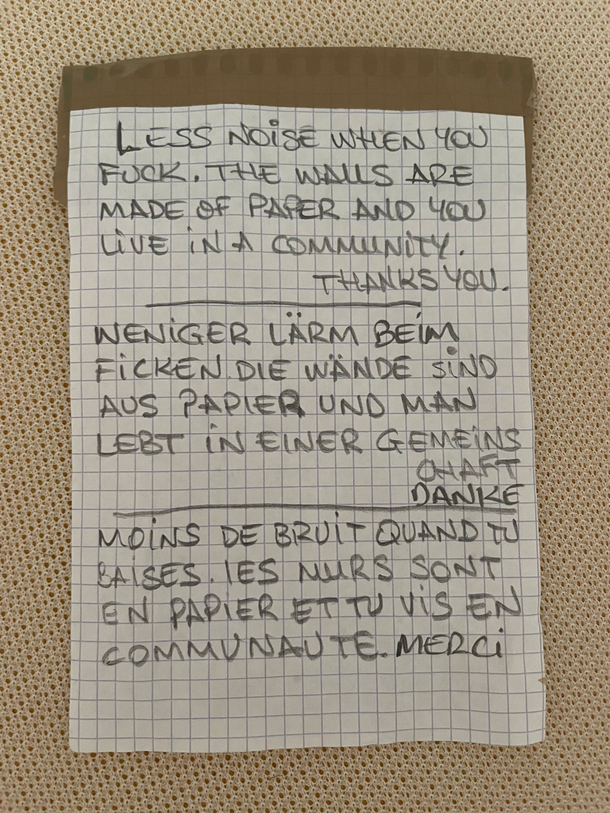 LESS NOISE WHEN YOU
FUCK. THE WALLS ARE
MADE OF PAPER AND YOU
LIVE IN A COMMUNITY.
THANKS YOU.
WENIGER LÄRM BEIM
FICKEN. DIE WÄNDE SIND
AUS PAPIER UND MAN
LEBT IN EINER GEMEINS
CHAFT
DANKE
MOINS DE BRUIT QUAND TU
BAISES. LES MURS SONT
EN PAPIER ET TU VIS EN
COMMUNAUTE. MERCI